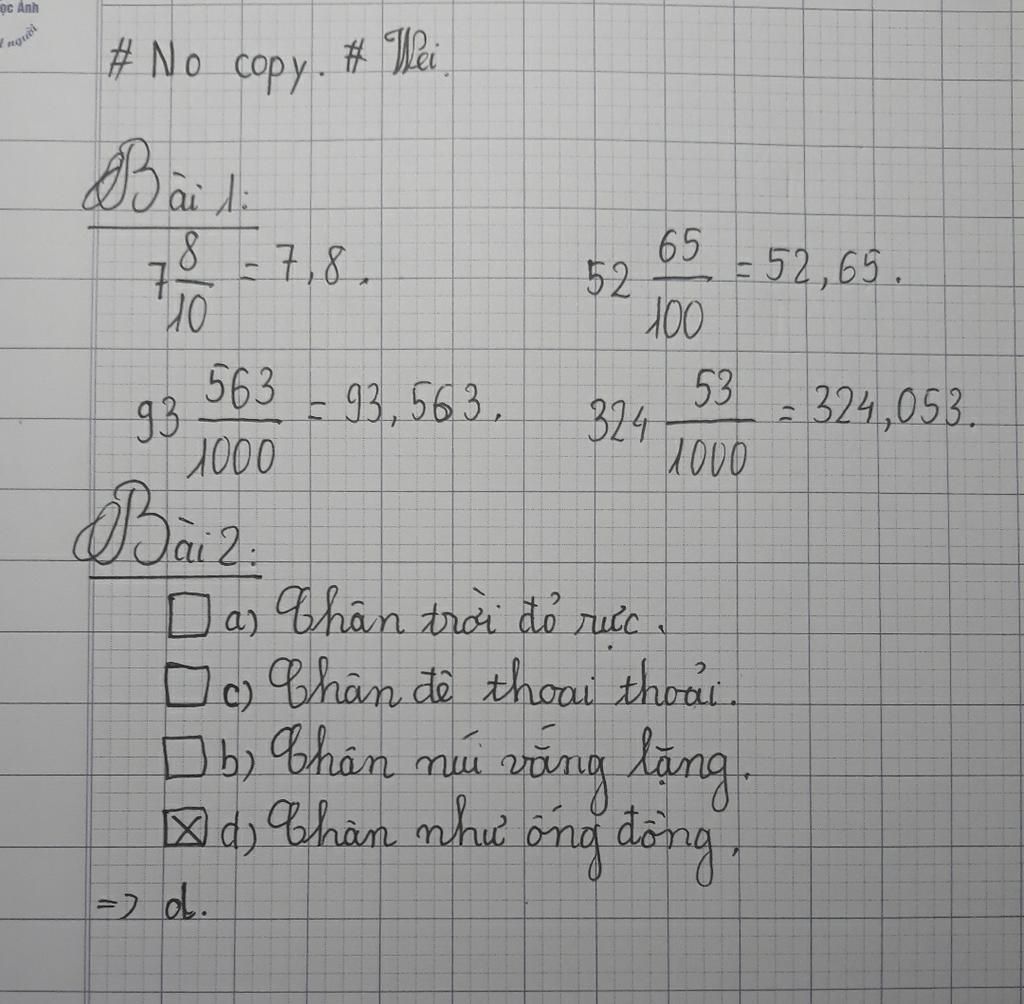 ọc Ánh
người
# No copy. # Wei.
Bài 1:
7 8/10 = 7,8. 52 65/100 = 52,65.
93 563/1000 = 93,563. 324 53/1000 = 324,053.
Bài 2:
a) Chân trời đỏ rực.
c) Chân đê thoai thoải.
b) Chân núi vắng lặng.
☒ d) Chân như ống đồng.
=> d.